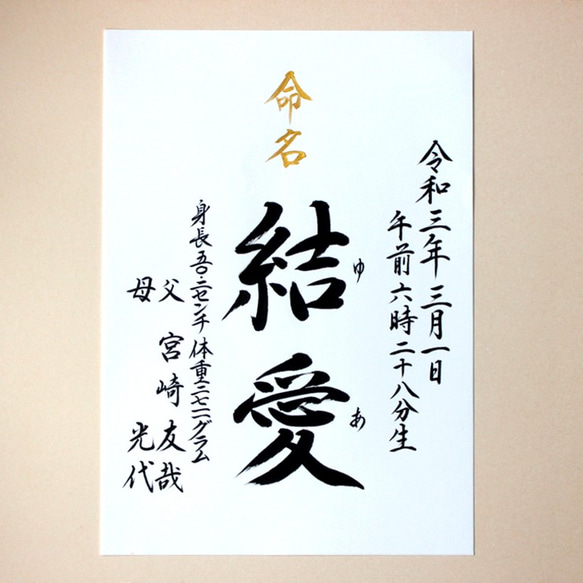 命名
令和三年三月一日
午前六時二十八分生
結愛
ゆあ
身長五〇・二センチ 体重 グラム
父 宮崎 友哉
母 光代